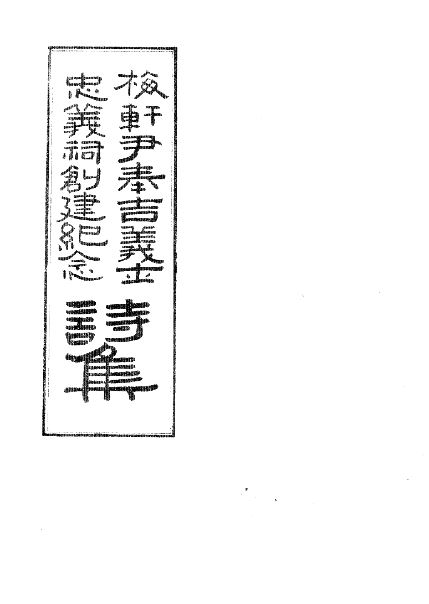 梅軒尹奉吉義士
忠義祠創建紀念
詩集